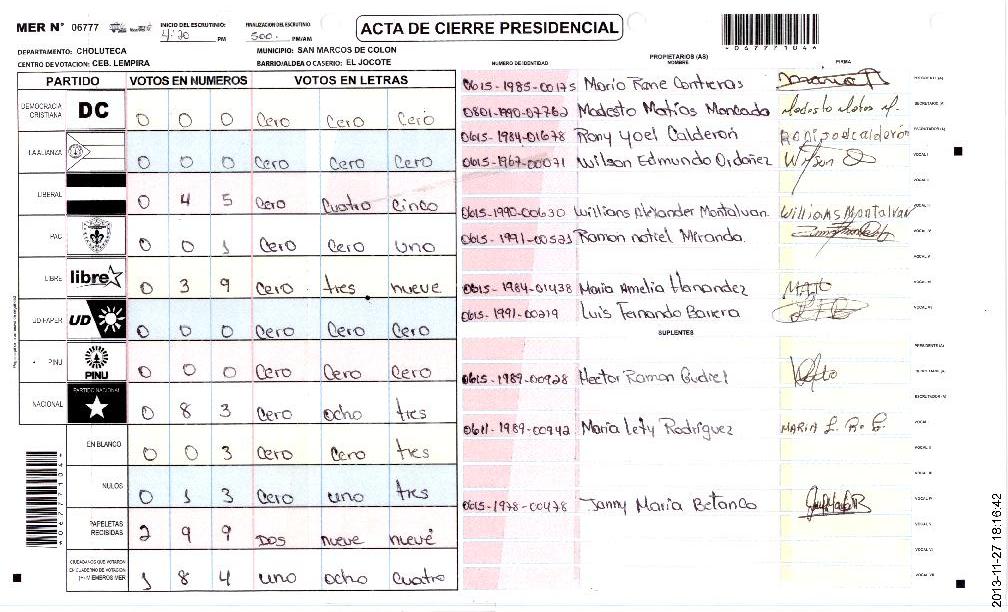 MER N° 06777
INICIO DEL ESCRUTINIO: 4:20 PM
FINALIZACION DEL ESCRUTINIO 500. PM/AM
ACTA DE CIERRE PRESIDENCIAL
067771046
DEPARTAMENTO: CHOLUTECA
MUNICIPIO: SAN MARCOS DE COLON
CENTRO DE VOTACION: CEB. LEMPIRA
BARRIO/ALDEA O CASERIO: EL JOCOTE
PARTIDO VOTOS EN NUMEROS VOTOS EN LETRAS
DEMOCRACIA CRISTIANA DC 0 0 0 Cero Cero Cero
LA ALIANZA 0 0 0 Cero Cero Cero
LIBERAL 0 4 5 Cero Cuatro Cinco
PAC 0 0 1 Cero Cero uno
LIBRE libre 0 3 9 Cero tres nueve
UD-FAPER UD 0 0 0 Cero Cero Cero
PINU PINU 0 0 0 Cero Cero Cero
NACIONAL PARTIDO NACIONAL 0 8 3 Cero ocho tres
EN BLANCO 0 0 3 Cero Cero tres
NULOS 0 1 3 Cero uno tres
PAPELETAS RECIBIDAS 2 9 9 DOS nueve nueve
CIUDADANOS QUE VOTARON EN CUADERNO DE VOTACION (+) MIEMBROS MER 1 8 4 uno ocho cuatro
067771046
NUMERO DE IDENTIDAD PROPIETARIOS (AS) NOMBRE FIRMA
0615-1985-00175 Mario Rene Contreras PRESIDENTE (A)
0801-1990-07762 Modesto Matias Moncada Modesto Matias M. SECRETARIO (A)
0615-1984-01678 Rony yoel Calderon ESCRUTADOR (A)
0615-1967-00071 Wilson Edmundo Ordoñez Wilson O VOCAL I
VOCAL II
0615-1990-00630 Willians Alexander Montalvan. Willians Montalvan VOCAL III
0615-1991-00521 Ramon natiel Miranda. VOCAL IV
VOCAL V
0615-1984-01438 Maria Amelia Hernandez VOCAL VI
0615-1991-00219 Luis Fernando Barrera VOCAL VII
SUPLENTES
PRESIDENTE (A)
0615-1989-00928 Hector Ramon Gudiel SECRETARIO (A)
ESCRUTADOR (A)
0611-1989-00942 Maria Lety Rodriguez MARIA L. R. G. VOCAL I
VOCAL II
VOCAL III
0615-1978-00478 Janny Maria Betanco VOCAL IV
VOCAL V
VOCAL VI
VOCAL VII
2013-11-27 18:16:42